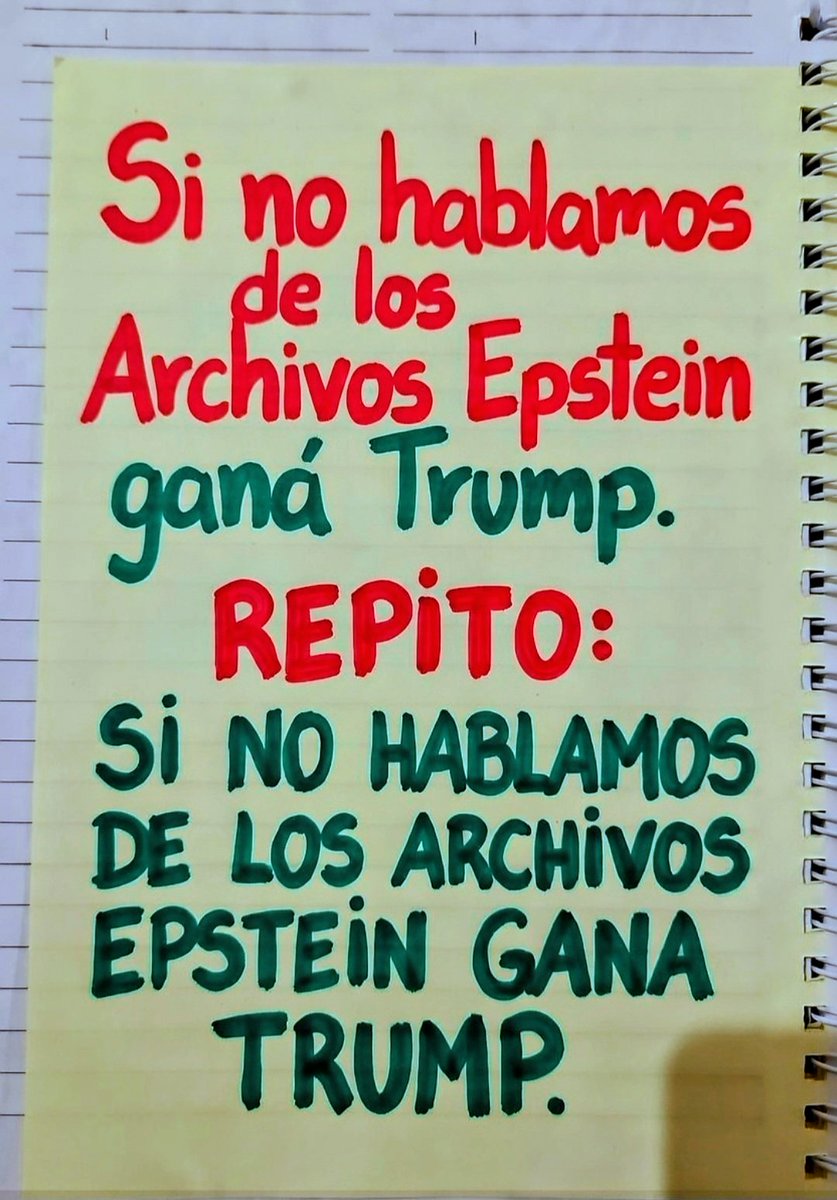 Si no hablamos
de los
Archivos Epstein
ganá Trump.
REPiTO:
Si NO HABLAMOS
DE LOS ARCHiVOS
EPSTEiN GANA
TRUMP.